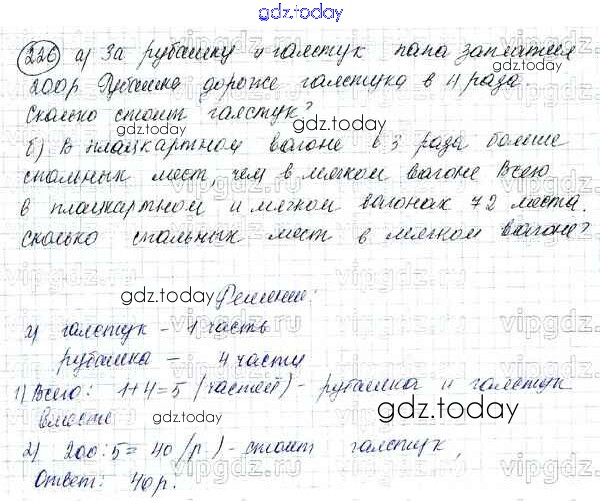 gdz.today
226 а) За рубашку и галстук папа заплатил
200р. Рубашка дороже галстука в 4 раза.
Сколько стоит галстук?
gdz.today gdz.today
б) В плацкартном вагоне в 3 раза больше
спальных мест чем в мягком вагоне Всего
в плацкартном и мягком вагонах 72 места.
Сколько спальных мест в мягком вагоне?
gdz.today Решение:
а) галстук – 1 часть
рубашка – 4 части
1) Всего: 1+4=5 (частей) – рубашка и галстук
вместе
gdz.today
2) 200:5=40 (р.) – стоит галстук.
Ответ: 40р.
gdz.today